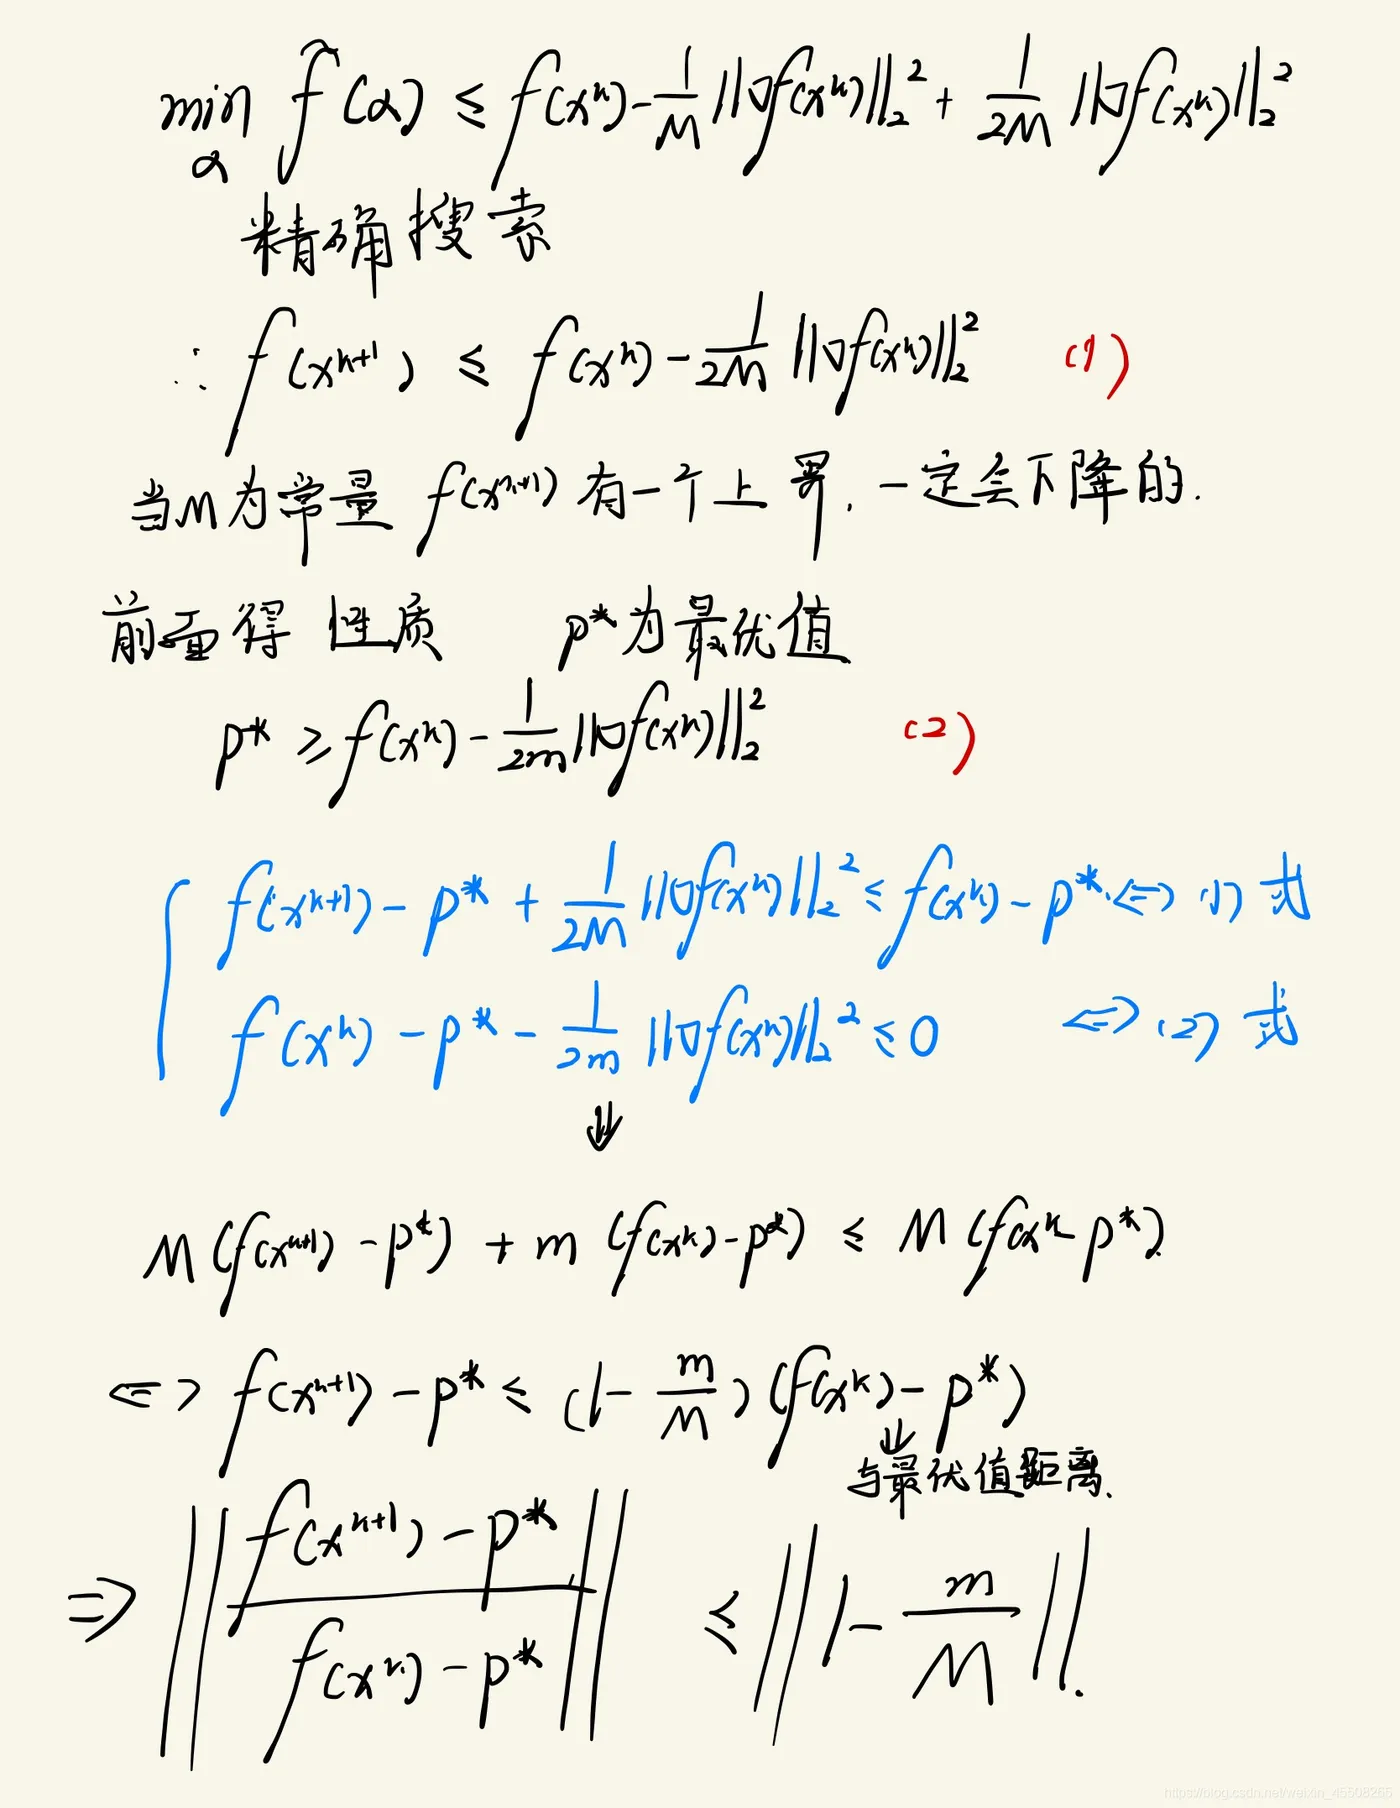 min_α f̃(α) ≤ f(x^k) - 1/M ||∇f(x^k)||₂² + 1/2M ||∇f(x^k)||₂²
精确搜索
∴ f(x^{k+1}) ≤ f(x^k) - 1/2M ||∇f(x^k)||₂² (1)
当M为常量 f(x^{k+1})有一个上界. 一定会下降的.
前面得 性质 p*为最优值
p* ≥ f(x^k) - 1/2m ||∇f(x^k)||₂² (2)
f(x^{k+1}) - p* + 1/2M ||∇f(x^k)||₂² ≤ f(x^k) - p* <=> (1) 式
f(x^k) - p* - 1/2m ||∇f(x^k)||₂² ≤ 0 <=> (2) 式
⇓
M(f(x^{k+1}) - p*) + m(f(x^k) - p*) ≤ M(f(x^k - p*).
<=> f(x^{k+1}) - p* ≤ (1 - m/M)(f(x^k) - p*)
⇓
与最优值距离.
=> ||(f(x^{k+1}) - p*)/(f(x^k) - p*)|| ≤ ||1 - m/M||.
https://blog.csdn.net/weixin_45508265